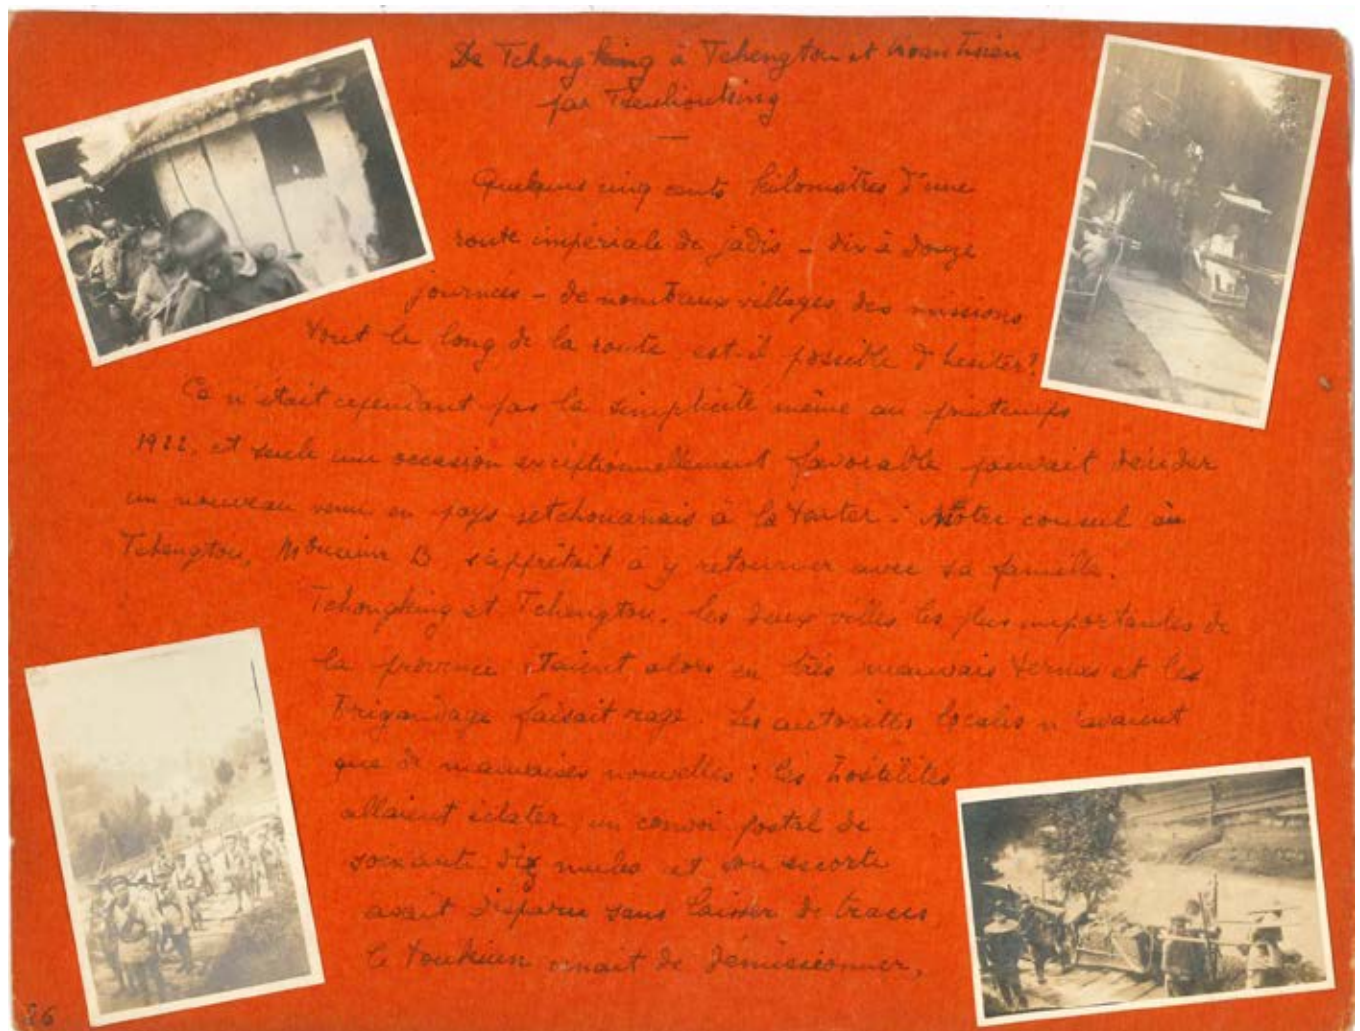 De Tchong King à Tchengtou et Koan Hsien
par Tzeulioutsing
Quelques cinq cents kilomètres d'une
route impériale de jadis – dix à douze
journées – de nombreux villages des missions
tout le long de la route est-il possible d'hesiter?
Ça n'était cependant pas la simplicité même au printemps
1922, et seule une occasion exceptionnellement favorable pouvait décider
un nouveau venu en pays setchouanais à la tenter : Notre consul à
Tchengtou, Monsieur B s'apprêtait à y retourner avec sa famille.
Tchongking et Tchengtou, les deux villes les plus importantes de
la province étaient alors en très mauvais termes et les
brigandage faisait rage. Les autorités locales n'avaient
que de mauvaises nouvelles : les hostilités
allaient éclater, un convoi postal de
soixante dix mules et son escorte
avait disparu sans laisser de traces
le venait de démissionner,
86